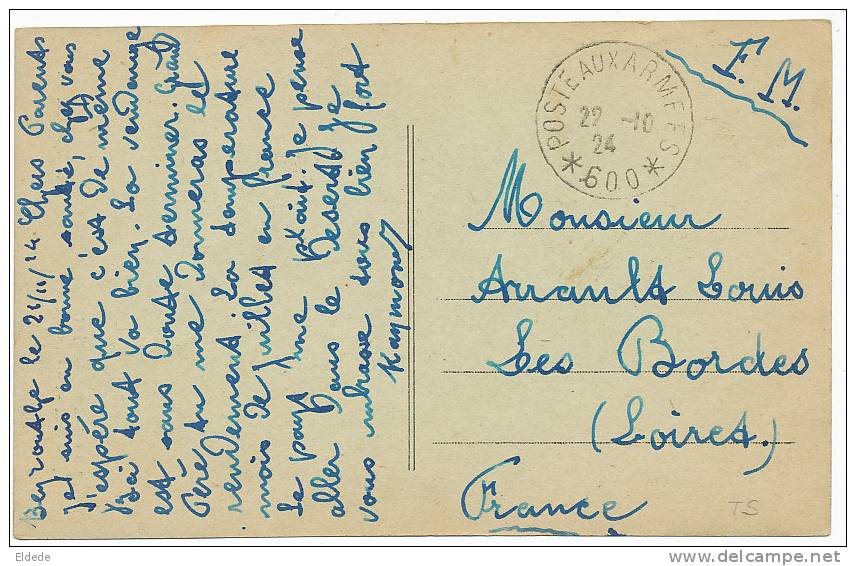 Beyrouth le 21/10/24 Chers Parents
Je suis en bonne santé, chez vous
J'espère que c'est de même
Ici tout va bien. La vendange
est sans doute terminer. Grand
Père tu me donneras le
rendement. La température
mois de Juillet en france
Le pays me plait. Je pense
aller dans le Desert Je
vous embrasse tous bien fort
Raymond
F.M.
* POSTE AUX ARMEES * 600
22 -10
24
Monsieur
Arrault Louis
Les Bordes
(Loiret.)
France
TS
Eldede
delcampe.net